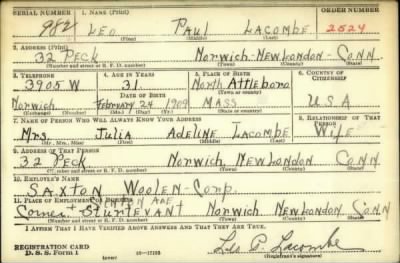 SERIAL NUMBER 1. NAME (Print) ORDER NUMBER
982 LEO PAUL LACOMBE 2524
(First) (Middle) (Last)
2. ADDRESS (Print)
32 PECK Norwich - New London - Conn
(Number and street or R. F. D. number) (Town) (County) (State)
3. TELEPHONE 4. AGE IN YEARS 5. PLACE OF BIRTH 6. COUNTRY OF CITIZENSHIP
3905 W 31 North Attleboro
DATE OF BIRTH (Town or county)
Norwich February 24 1909 MASS U S A
(Exchange) (Mo.) (Day) (Yr.) (State or country)
7. NAME OF PERSON WHO WILL ALWAYS KNOW YOUR ADDRESS 8. RELATIONSHIP OF THAT PERSON
Mrs. Julia Adeline Lacombe Wife
(Mr., Mrs., Miss) (First) (Middle) (Last)
9. ADDRESS OF THAT PERSON
32 Peck Norwich New London Conn
(Number and street or R. F. D. number) (Town) (County) (State)
10. EMPLOYER'S NAME
SAXTON Woolen Corp.
11. PLACE OF EMPLOYMENT OR BUSINESS
Corner + Sturtevant Norwich New London Conn
(Number and street or R. F. D. number) (Town) (County) (State)
I AFFIRM THAT I HAVE VERIFIED ABOVE ANSWERS AND THAT THEY ARE TRUE.
REGISTRATION CARD
D. S. S. Form 1 16-17105 Leo P. Lacombe
(over) (Registrant's signature)